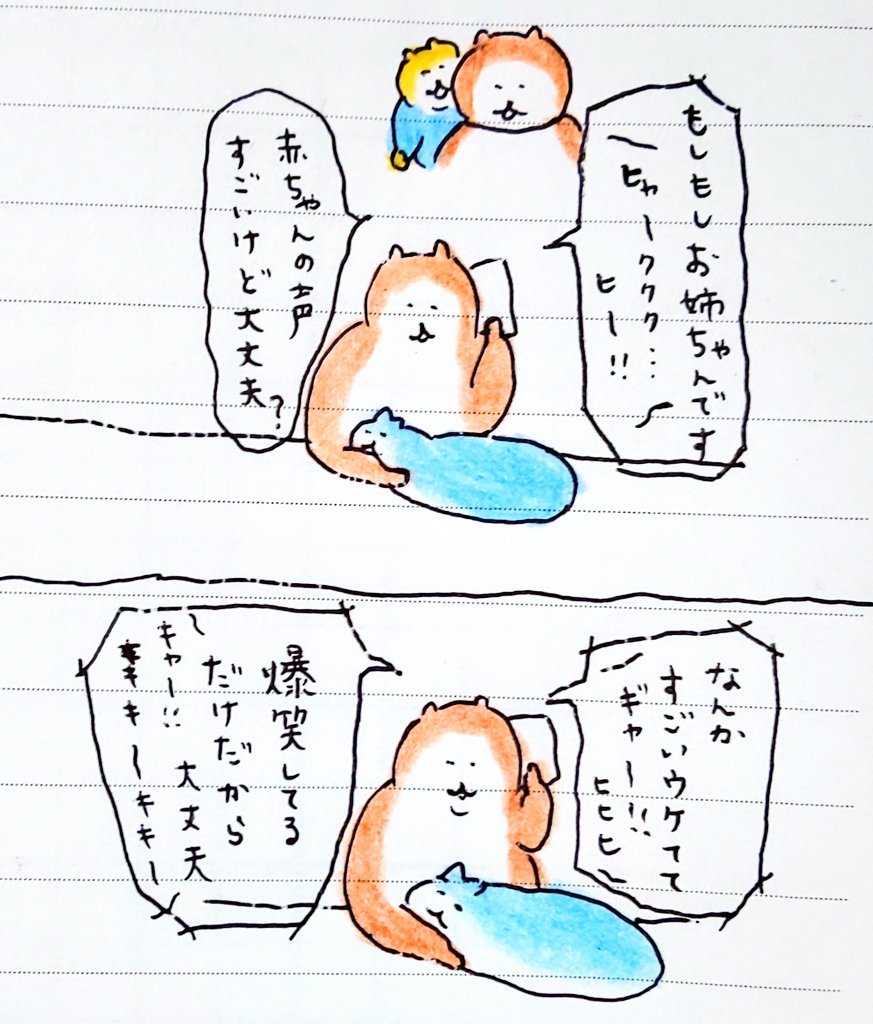 もしもしお姉ちゃんです
〜ヒャークククク…
ヒー!!〜
赤ちゃんの声
すごいけど大丈夫?
なんか
すごいウケてて
〜ギャー!!
ヒヒヒ〜
爆笑してる
だけだから
大丈夫
〜キャー!!
キキキーキキー